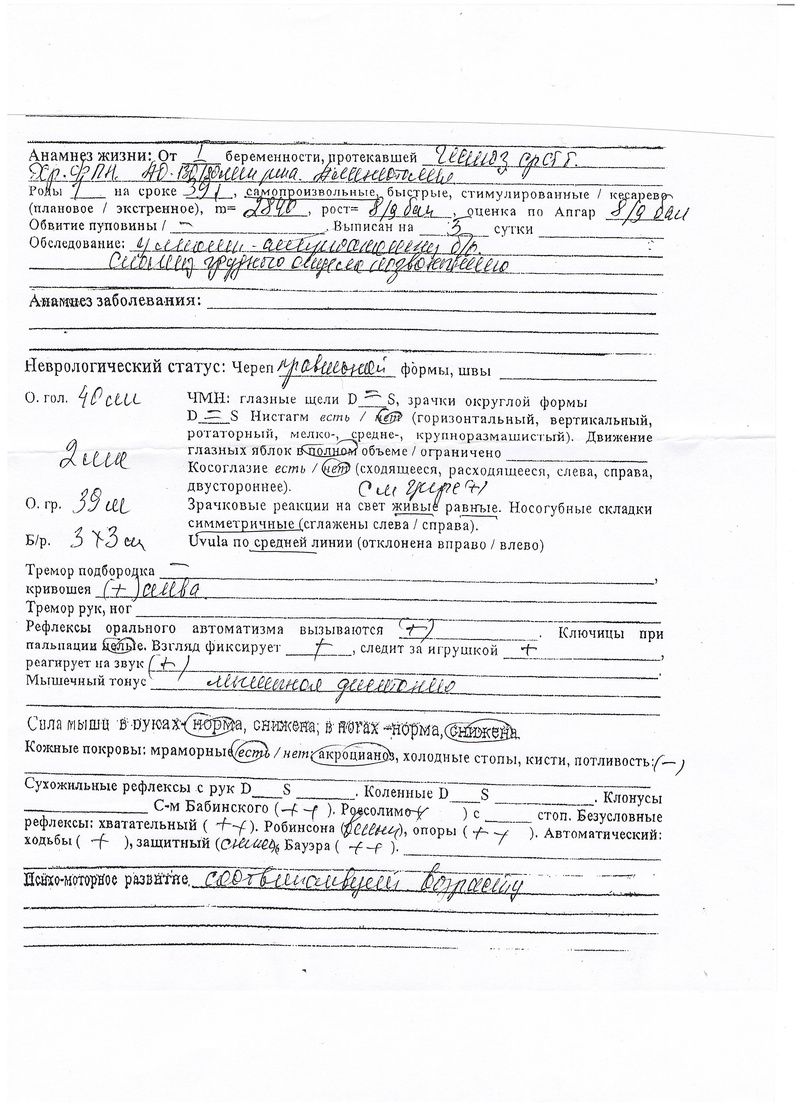 Анамнез жизни: От I беременности, протекавшей гестоз ср ст.
Хр. ФПН. АД-130/80
Роды 1 на сроке 39, самопроизвольные, быстрые, стимулированные / кесарево
(плановое / экстренное), m= 2840, рост= 8/9 бал, оценка по Апгар 8/9 бал
Обвитие пуповины / — . Выписан на 3 сутки
Обследование:
грудного отдела позвоночника
Анамнез заболевания:
Неврологический статус: Череп правильной формы, швы
О. гол. 40 см ЧМН: глазные щели D = S, зрачки округлой формы
D = S Нистагм есть / нет (горизонтальный, вертикальный,
ротаторный, мелко-, средне-, крупноразмашистый). Движение
2 мес глазных яблок в полном объеме / ограничено
Косоглазие есть / нет (сходящееся, расходящееся, слева, справа,
двустороннее). С-м Грефе +/
О. гр. 39 см Зрачковые реакции на свет живые равные. Носогубные складки
симметричные (сглажены слева / справа).
Б/р. 3 х 3 см Uvula по средней линии (отклонена вправо / влево)
Тремор подбородка — ,
кривошея (+) слева
Тремор рук, ног
Рефлексы орального автоматизма вызываются (+) . Ключицы при
пальпации целые. Взгляд фиксирует + , следит за игрушкой + ,
реагирует на звук (+)
Мышечный тонус мышечная дистония
Сила мышц в руках - норма, снижена; в ногах - норма, снижена
Кожные покровы: мраморные есть / нет; акроцианоз, холодные стопы, кисти, потливость: (—)
Сухожильные рефлексы с рук D S . Коленные D S . Клонусы
С-м Бабинского (++ ). Россолимо ) с стоп. Безусловные
рефлексы: хватательный ( ++ ). Робинсона ( ), опоры ( ++ ). Автоматический:
ходьбы ( + ), защитный ( ), Бауэра ( ++ ).
Психо-моторное развитие соответствует возрасту